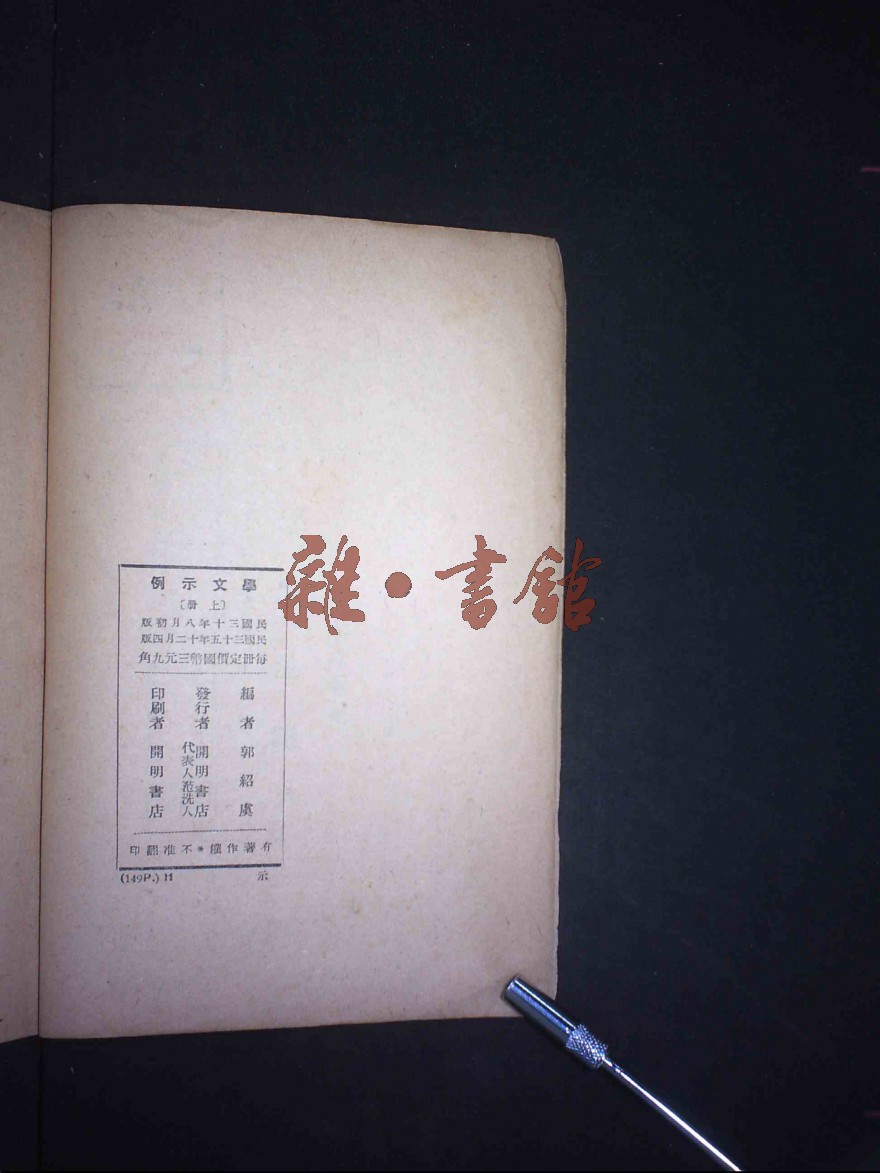 學文示例
〔上冊〕
民國三十年八月初版
民國三十五年十二月四版
每冊定價國幣三元九角
編者 郭紹虞
發行者 開明書店
代表人范洗人
印刷者 開明書店
有著作權＊不准翻印
(149P.) H 示
雜·書館